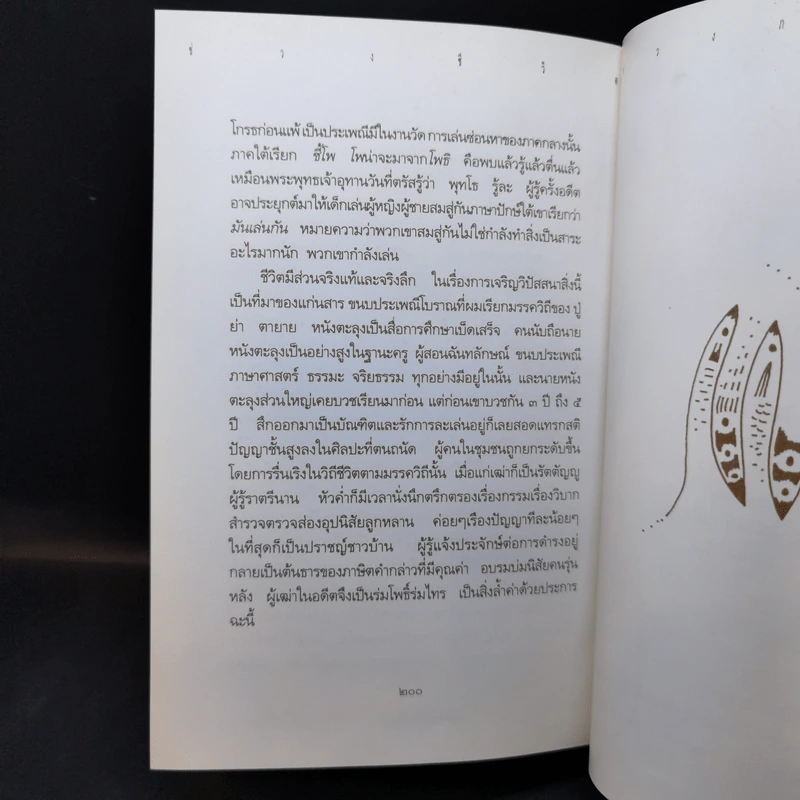 ช่ ว ง ชี วิ
ว ง ภ
โกรธก่อนแพ้ เป็นประเพณีมีในงานวัด การเล่นซ่อนหาของภาคกลางนั้น
ภาคใต้เรียก ชี้โพ โพน่าจะมาจากโพธิ คือพบแล้วรู้แล้วตื่นแล้ว
เหมือนพระพุทธเจ้าอุทานวันที่ตรัสรู้ว่า พุทโธ รู้ละ ผู้รู้ครั้งอดีต
อาจประยุกต์มาให้เด็กเล่นผู้หญิงผู้ชายสมสู่กันภาษาปักษ์ใต้เขาเรียกว่า
มันเล่นกัน หมายความว่าพวกเขาสมสู่กันไม่ใช่กำลังทำสิ่งเป็นสาระ
อะไรมากนัก พวกเขากำลังเล่น
ชีวิตมีส่วนจริงแท้และจริงลึก ในเรื่องการเจริญวิปัสสนาสิ่งนี้
เป็นที่มาของแก่นสาร ขนบประเพณีโบราณที่ผมเรียกมรรควิถีของ ปู่
ย่า ตายาย หนังตะลุงเป็นสื่อการศึกษาเบ็ดเสร็จ คนนับถือนาย
หนังตะลุงเป็นอย่างสูงในฐานะครู ผู้สอนฉันทลักษณ์ ขนบประเพณี
ภาษาศาสตร์ ธรรมะ จริยธรรม ทุกอย่างมีอยู่ในนั้น และนายหนัง
ตะลุงส่วนใหญ่เคยบวชเรียนมาก่อน แต่ก่อนเขาบวชกัน ๓ ปี ถึง ๕
ปี สึกออกมาเป็นบัณฑิตและรักการละเล่นอยู่ก็เลยสอดแทรกสติ
ปัญญาชั้นสูงลงในศิลปะที่ตนถนัด ผู้คนในชุมชนถูกยกระดับขึ้น
โดยการรื่นเริงในวิถีชีวิตตามมรรควิถีนั้น เมื่อแก่เฒ่าก็เป็นรัตตัญญู
ผู้รู้ราตรีนาน หัวค่ำก็มีเวลานั่งนึกตรึกตรองเรื่องกรรมเรื่องวิบาก
สำรวจตรวจส่องอุปนิสัยลูกหลาน ค่อยๆเรืองปัญญาทีละน้อยๆ
ในที่สุดก็เป็นปราชญ์ชาวบ้าน ผู้รู้แจ้งประจักษ์ต่อการดำรงอยู่
กลายเป็นต้นธารของภาษิตคำกล่าวที่มีคุณค่า อบรมบ่มนิสัยคนรุ่น
หลัง ผู้เฒ่าในอดีตจึงเป็นร่มโพธิ์ร่มไทร เป็นสิ่งล้ำค่าด้วยประการ
ฉะนี้
๒๐๐